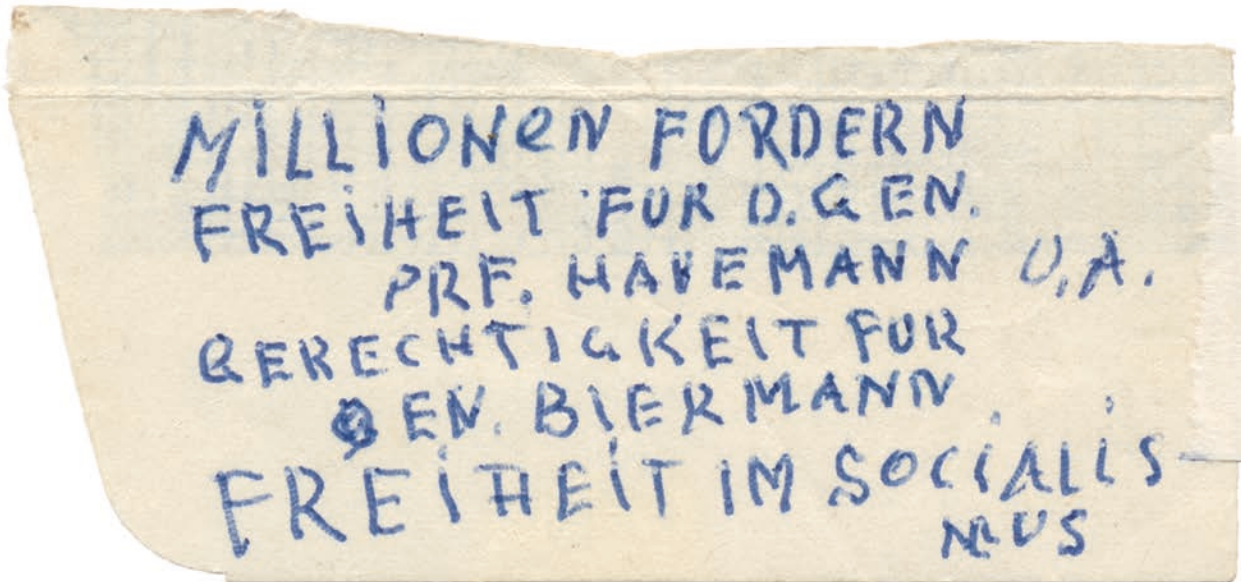 MiLLiONeN FORDERN
FREiHEIT FUR D. GEN.
PRF. HAVEMANN U.A.
GERECHTIGKEIT FUR
GEN. BIERMANN.
FREiHEiT IM SOCiALiS-
MUS